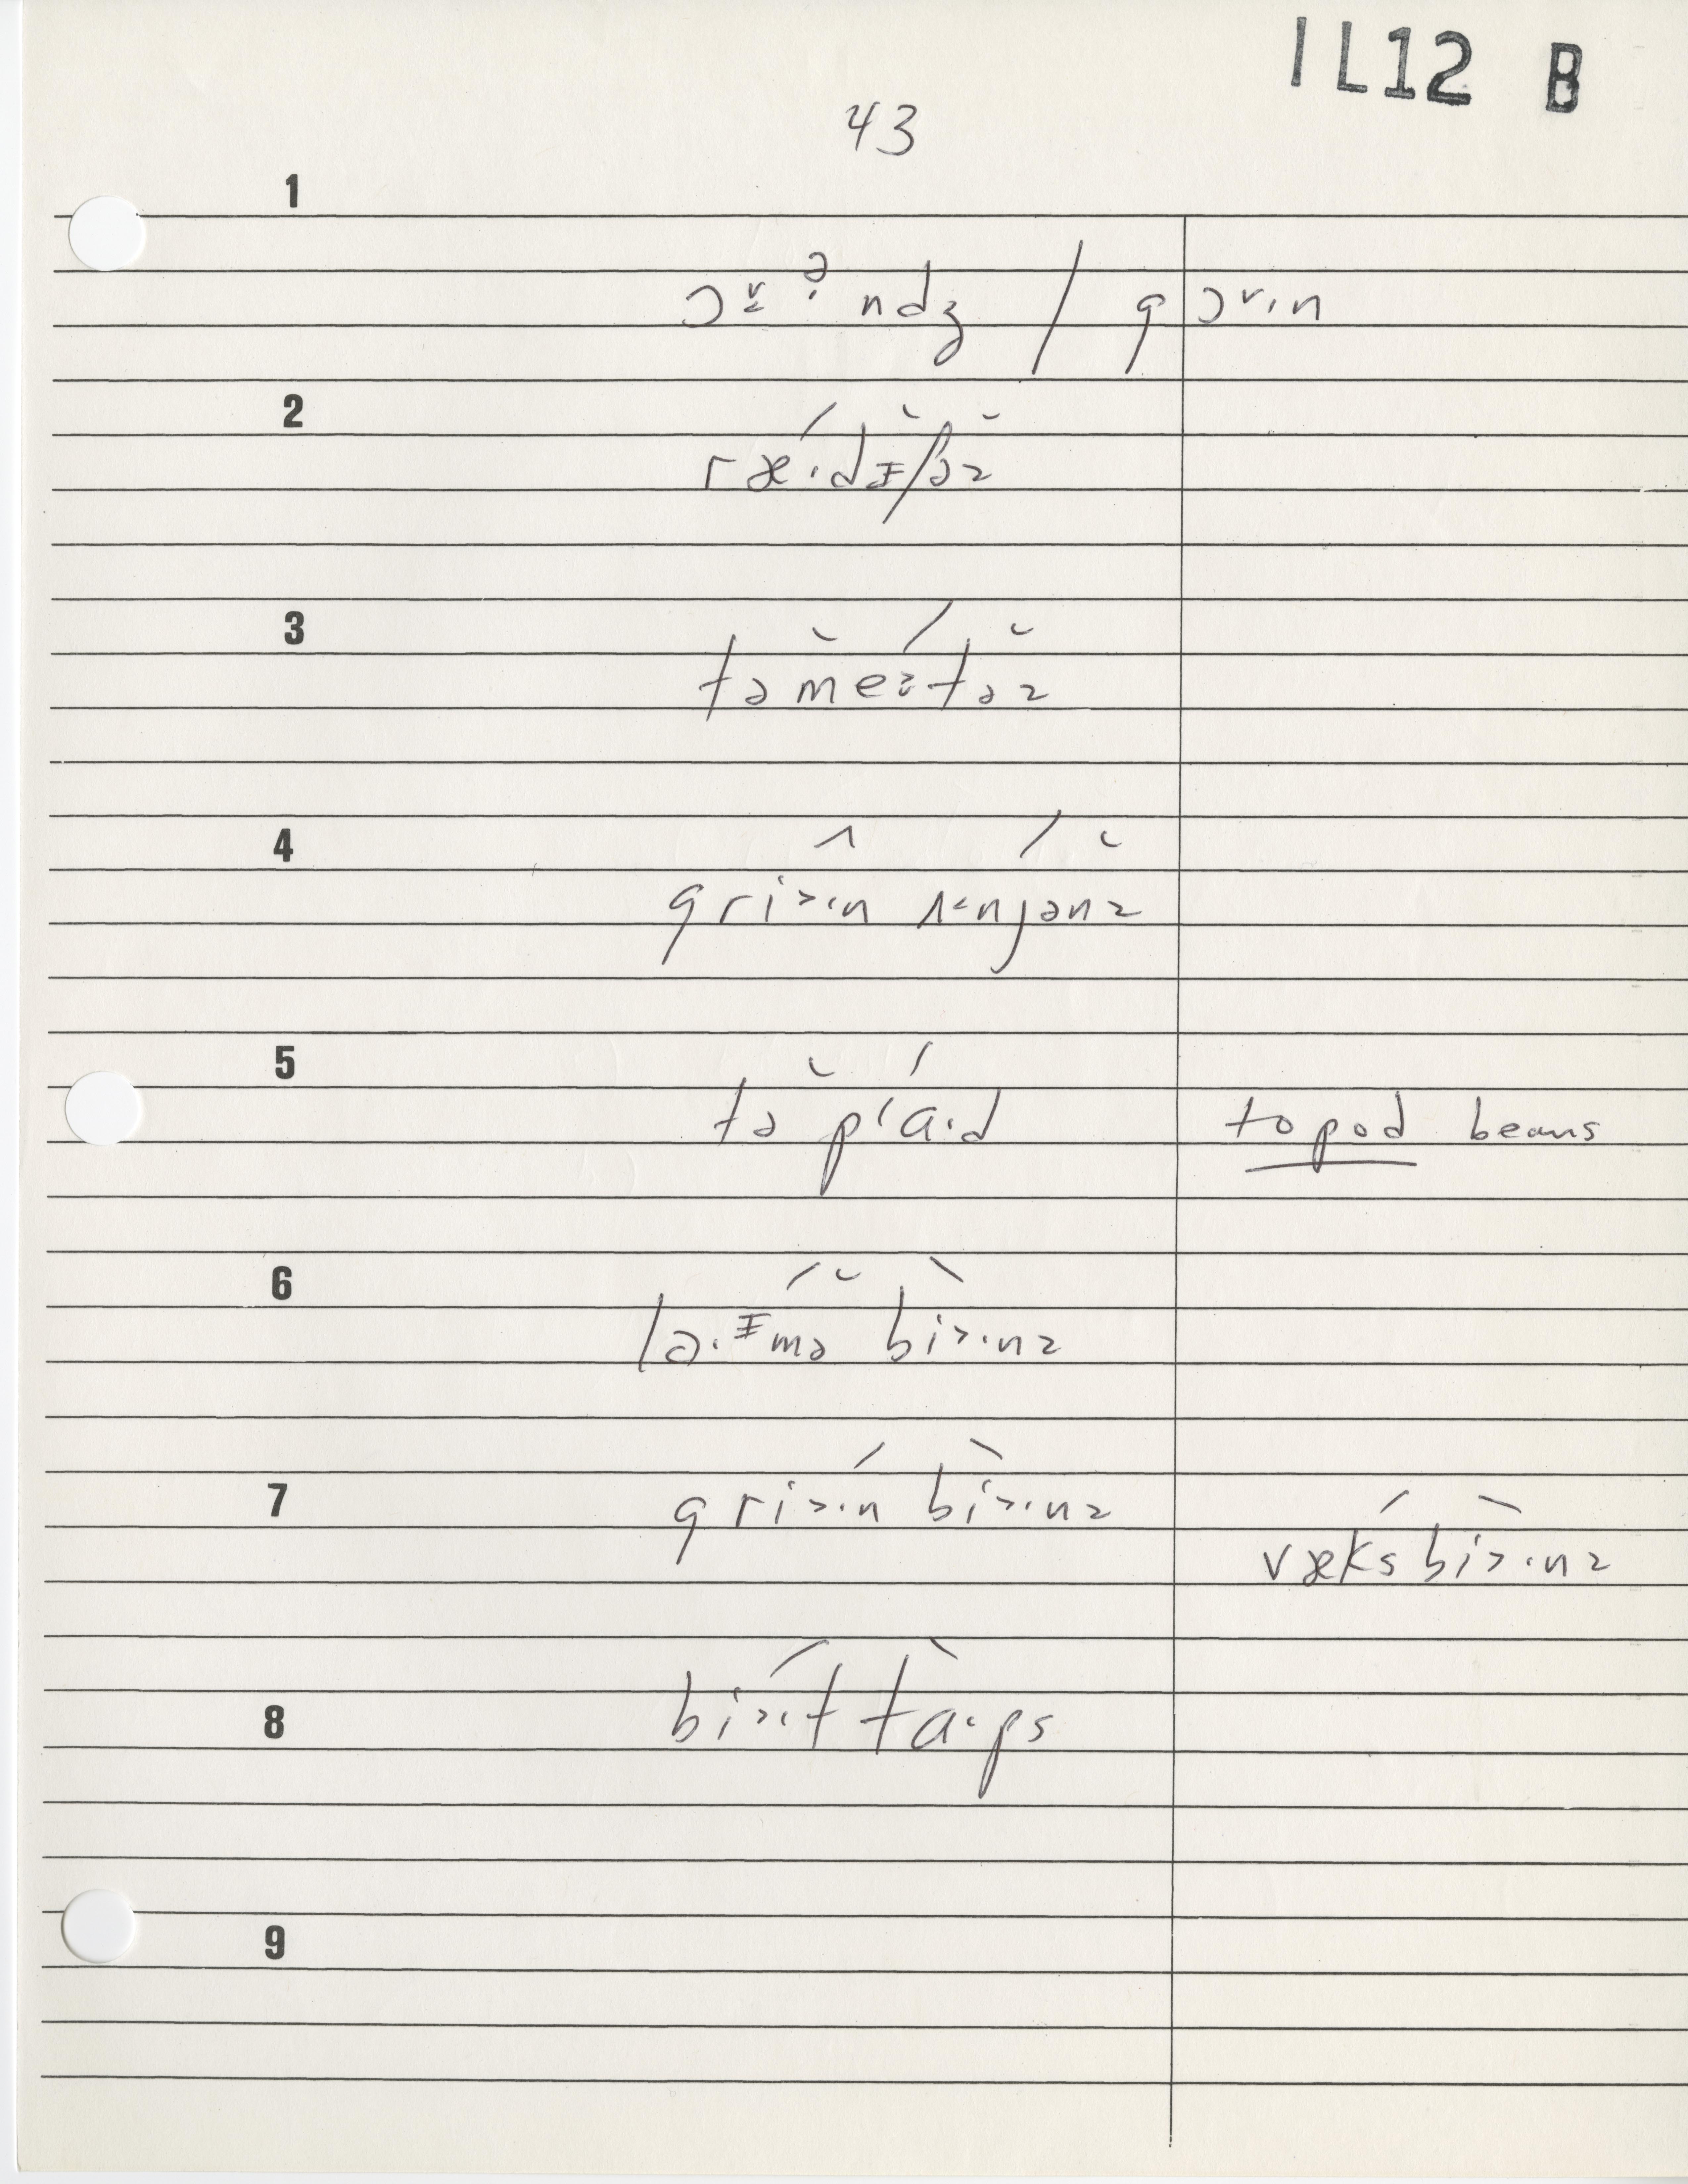 IL12 B
43
1
ɔ˞ ə ndʒ / gɔ˞ın
2
ræ·dɪ/ʃəz
3
təmeətəz
4
gri>·n ʌ·njənz
5
tə p'a·d to pod beans
6
la·ɪmə bi>·nz
7
gri>·n bi>·nz
væks bi>·nz
8
bi>·t ta·ps
9